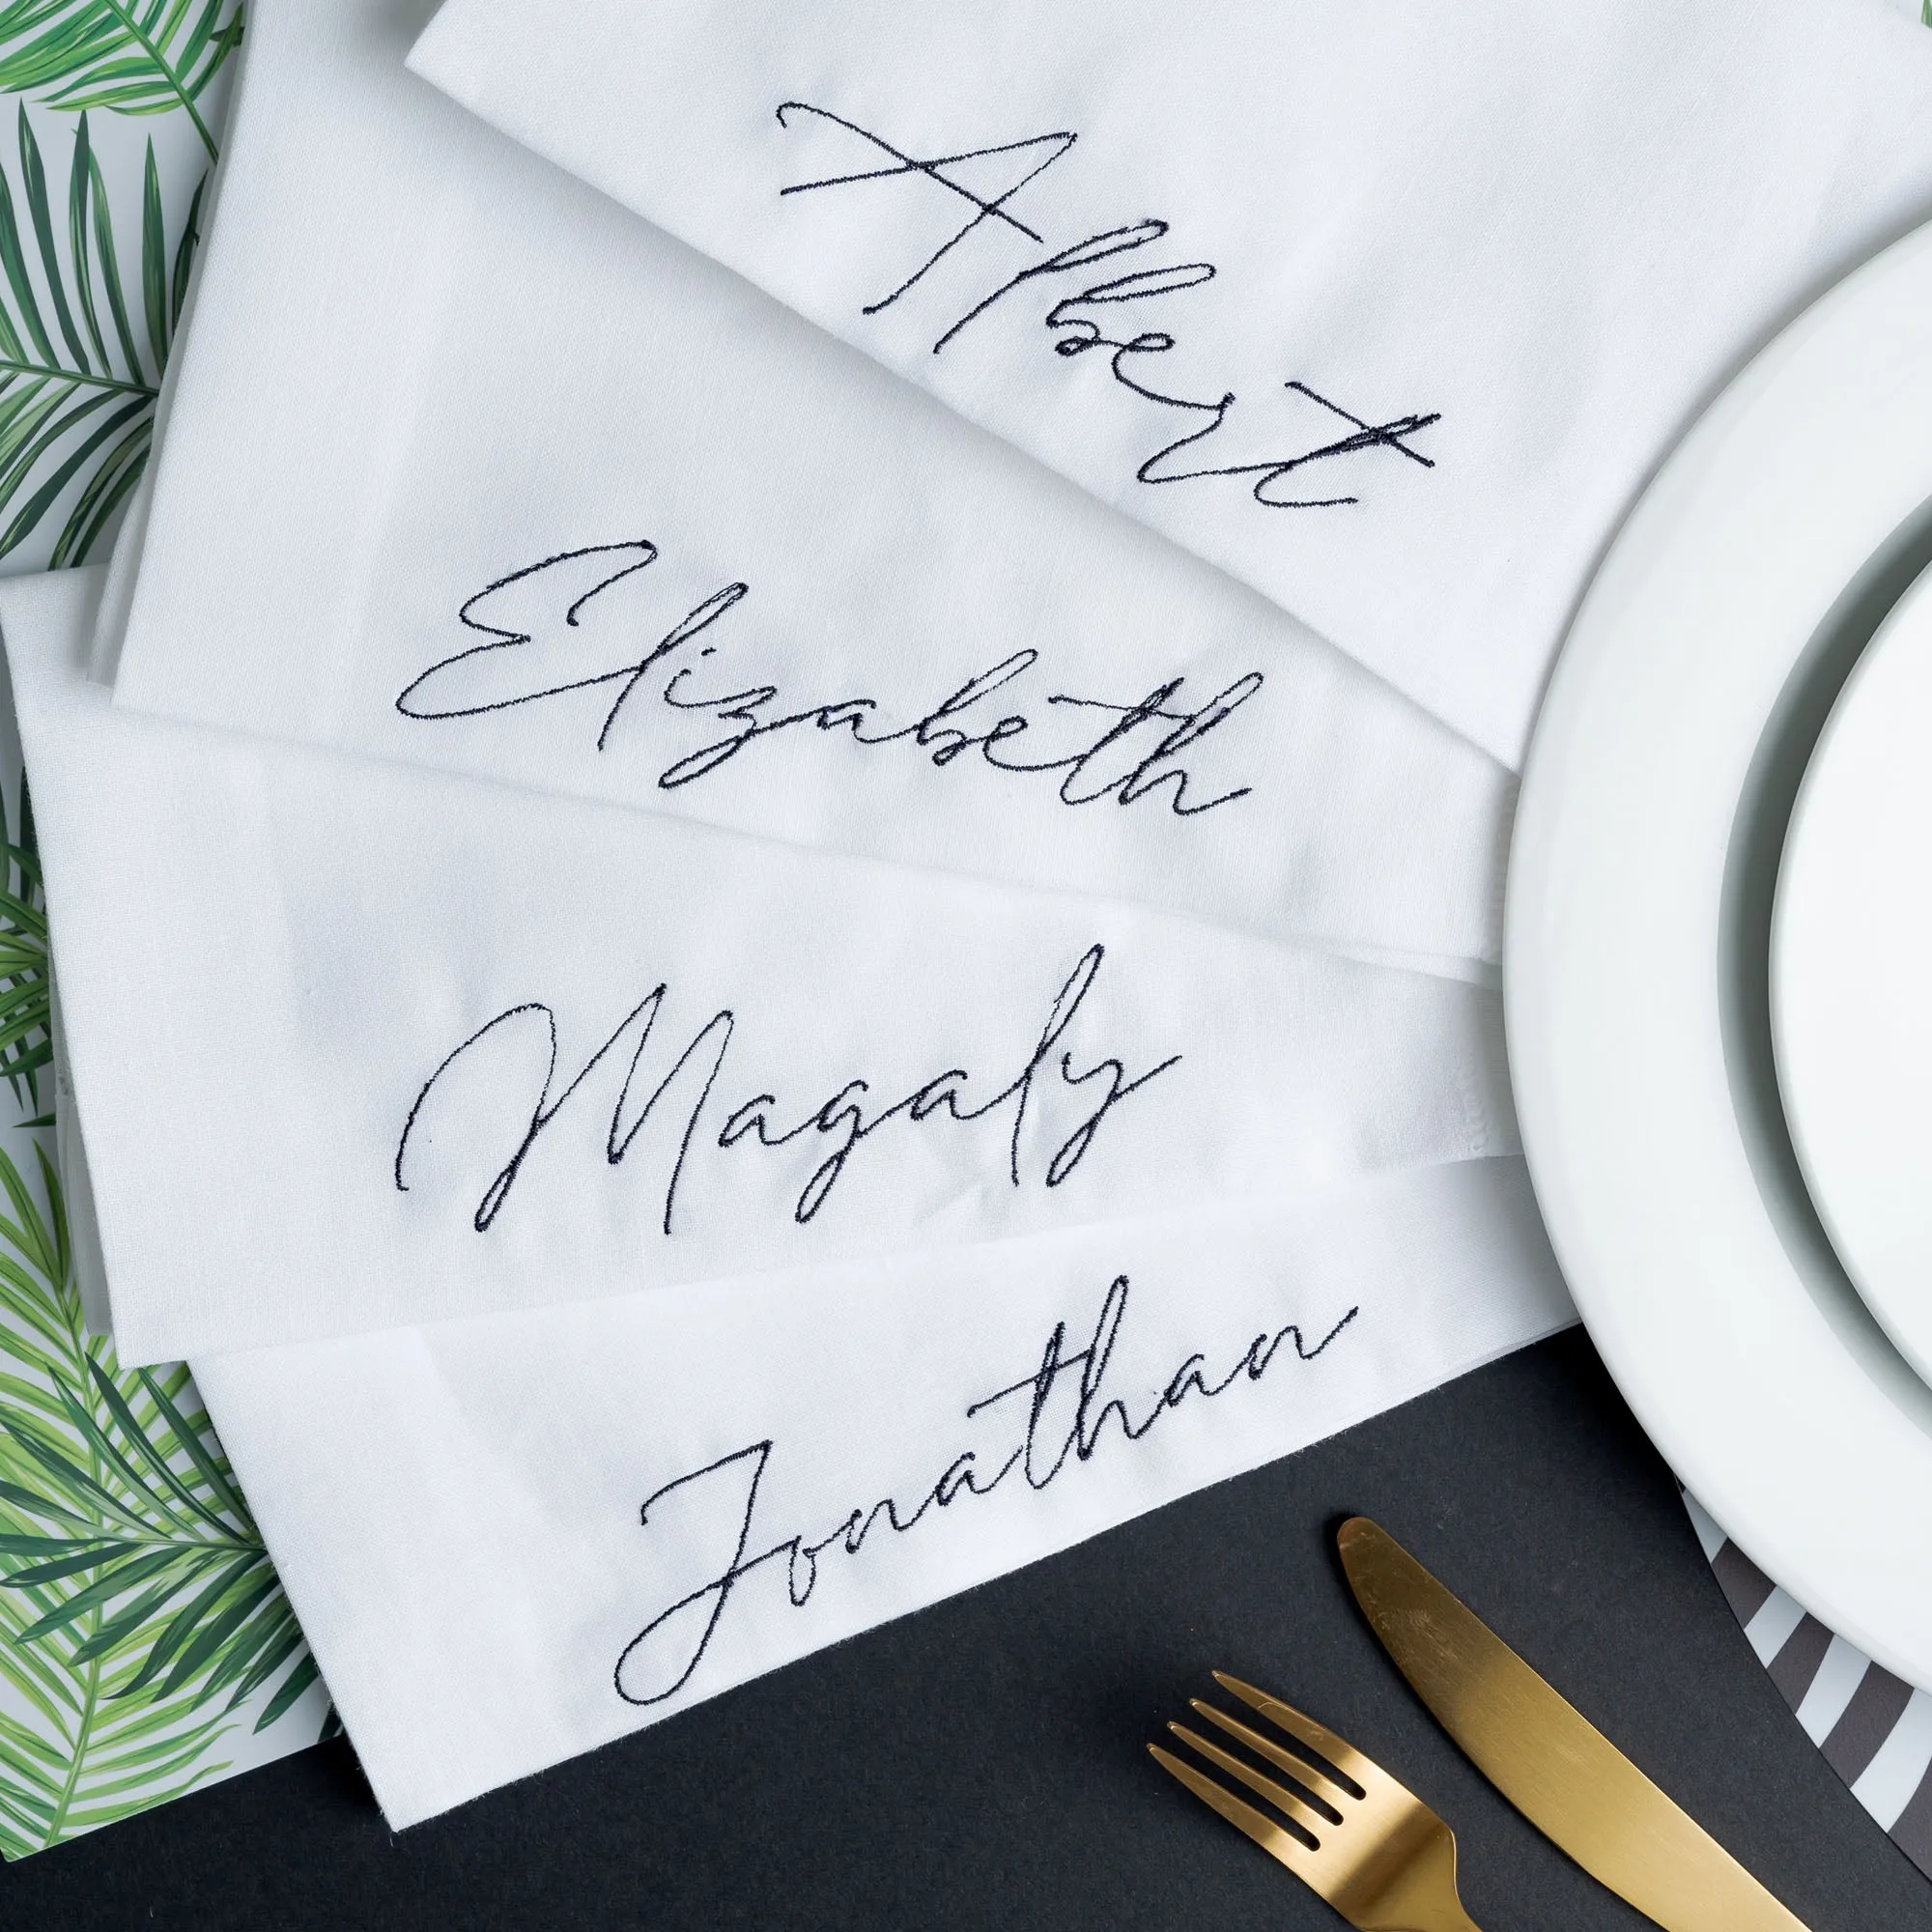 Albert
Elizabeth
Magaly
Jonathan